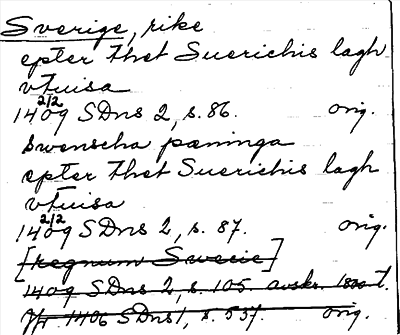 Sverige, rike
epter thet Suerichis lagh
vtuisa
14 2/2 09 SDns 2, s. 86. orig.
Swenscha pæninga
epter thet Suerichis lagh
vtuisa
14 2/2 09 SDns 2, s. 87. orig.
[regnum Swecie]
1409 SDns 2, s. 105. avskr. 1800t.
1406 SDns 1, s. 537. orig.